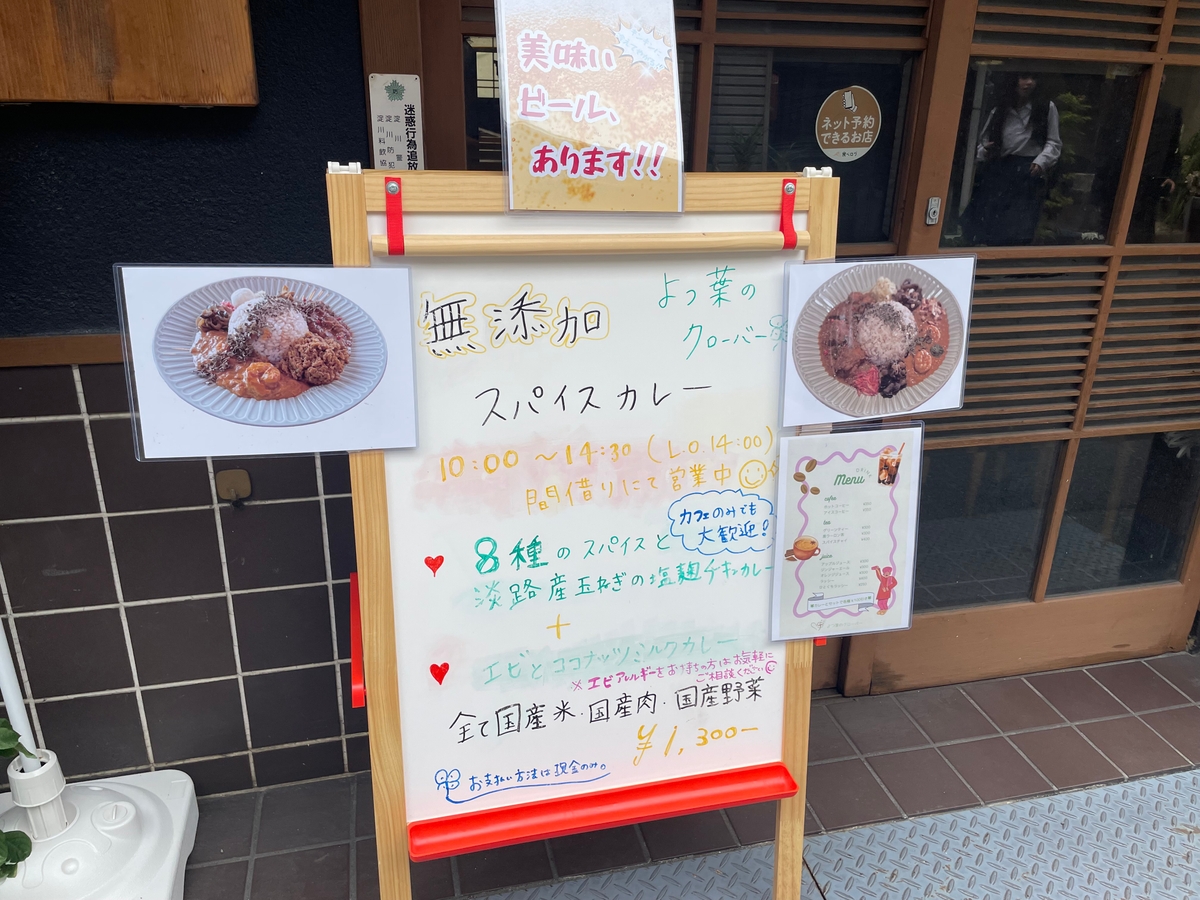 美味い
ビール、
あります!!
迷惑行為追放
ネット予約
できるお店
無添加
よつ葉の
クローバー
スパイスカレー
10:00 〜 14:30 (L.O. 14:00)
間借りにて営業中
カフェのみでも
大歓迎!
8種のスパイスと
淡路産玉ねぎの塩麹チキンカレー
+
エビとココナッツミルクカレー
※エビアレルギーをお持ちの方はお気軽に
ご相談ください
全て国産米・国産肉・国産野菜
¥1,300-
お支払い方法は現金のみ。
Menu